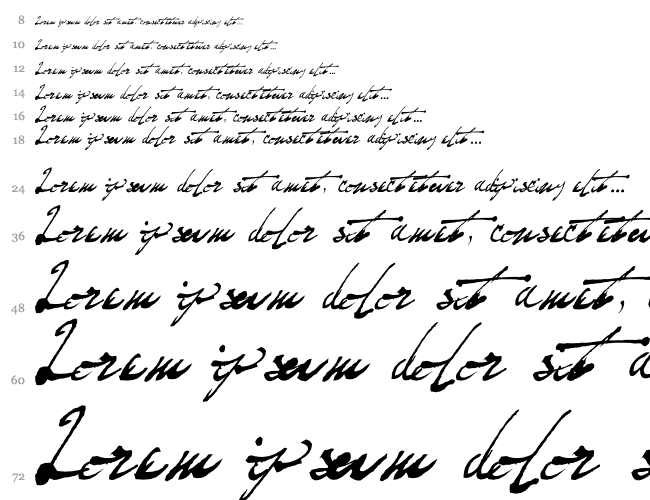 8 Lorem ipsum dolor sit amet, consectetuer adipiscing elit...
10 Lorem ipsum dolor sit amet, consectetuer adipiscing elit...
12 Lorem ipsum dolor sit amet, consectetuer adipiscing elit...
14 Lorem ipsum dolor sit amet, consectetuer adipiscing elit...
16 Lorem ipsum dolor sit amet, consectetuer adipiscing elit...
18 Lorem ipsum dolor sit amet, consectetuer adipiscing elit...
24 Lorem ipsum dolor sit amet, consectetuer adipiscing elit...
36 Lorem ipsum dolor sit amet, consectetuer
48 Lorem ipsum dolor sit amet,
60 Lorem ipsum dolor sit a
72 Lorem ipsum dolor s